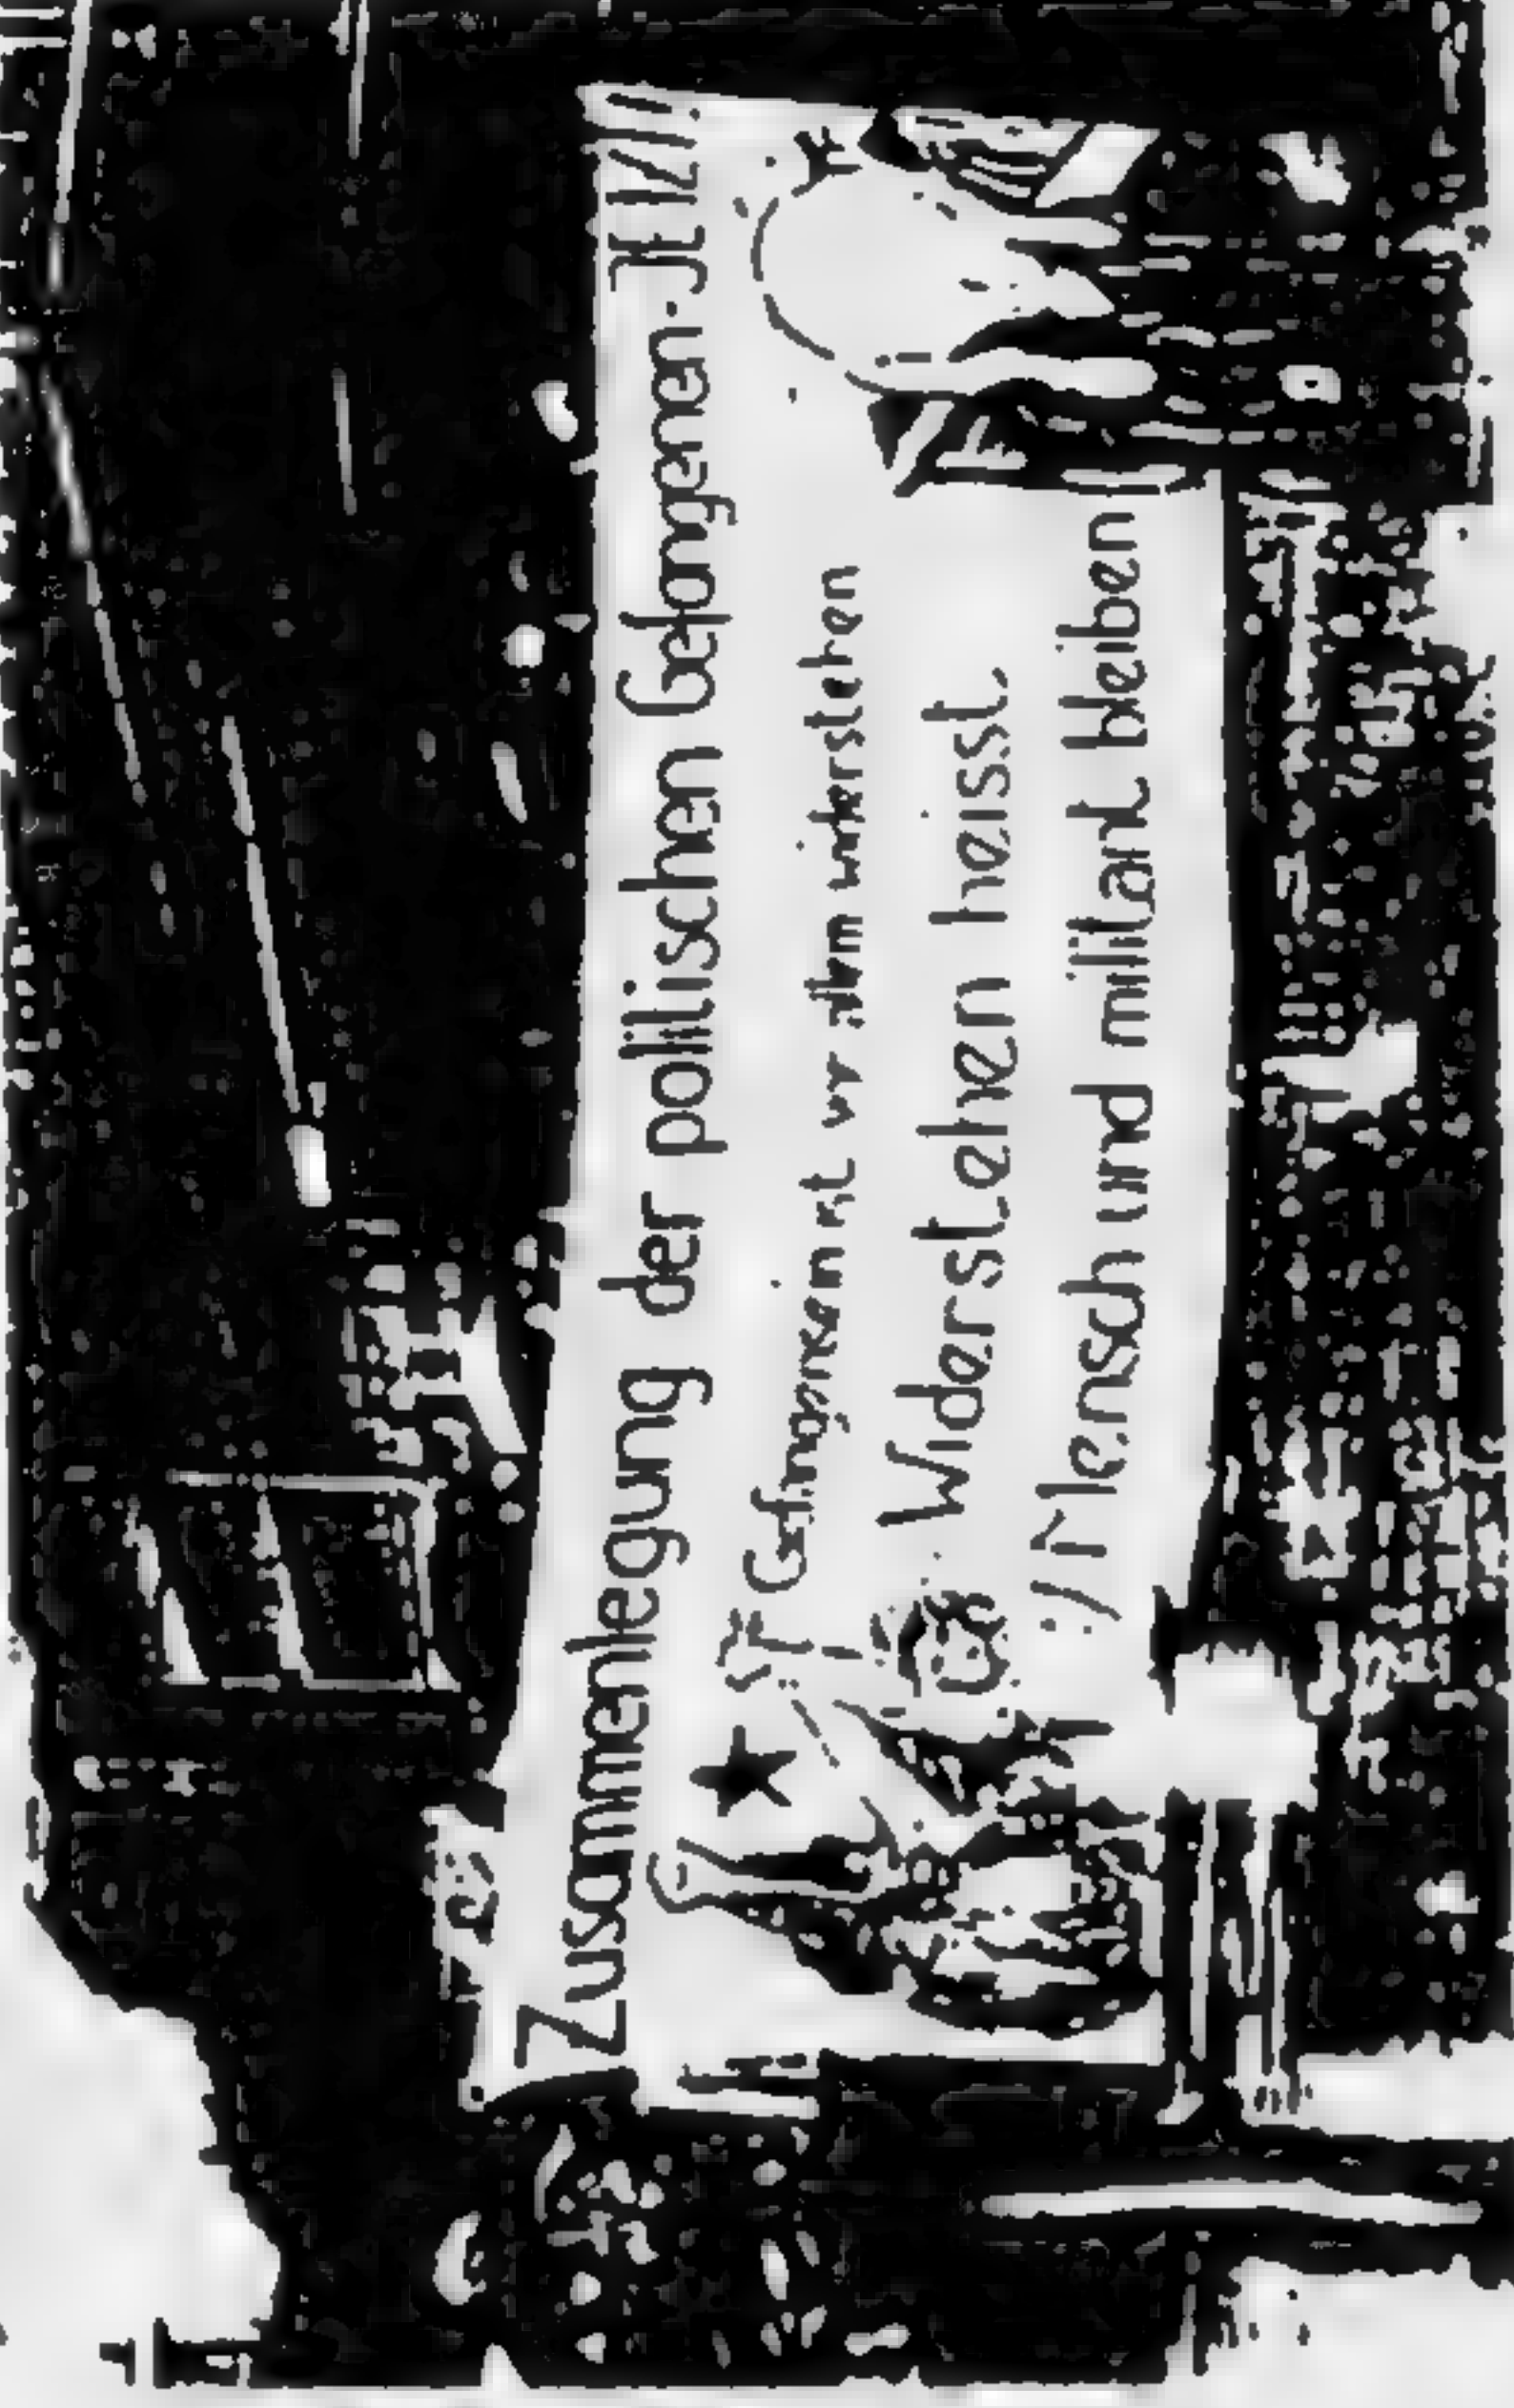 Zusammenlegung der politischen Gefangenen · JETZT!
Gefangensein ist vor allem widerstehen
Widerstehen heisst
Mensch und militant bleiben